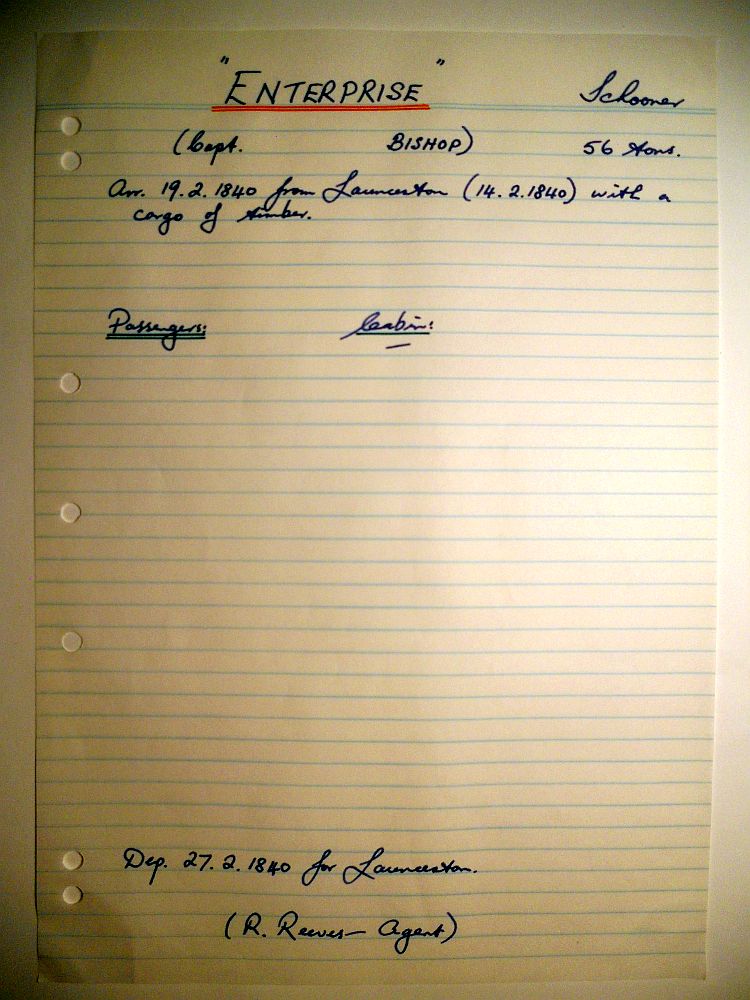 "ENTERPRISE" Schooner
(Capt. BISHOP) 56 tons.
Arr. 19.2.1840 from Launceston (14.2.1840) with a
cargo of timber.
Passengers: Cabin:
—
Dep. 27.2.1840 for Launceston.
(R. Reeves — Agent)